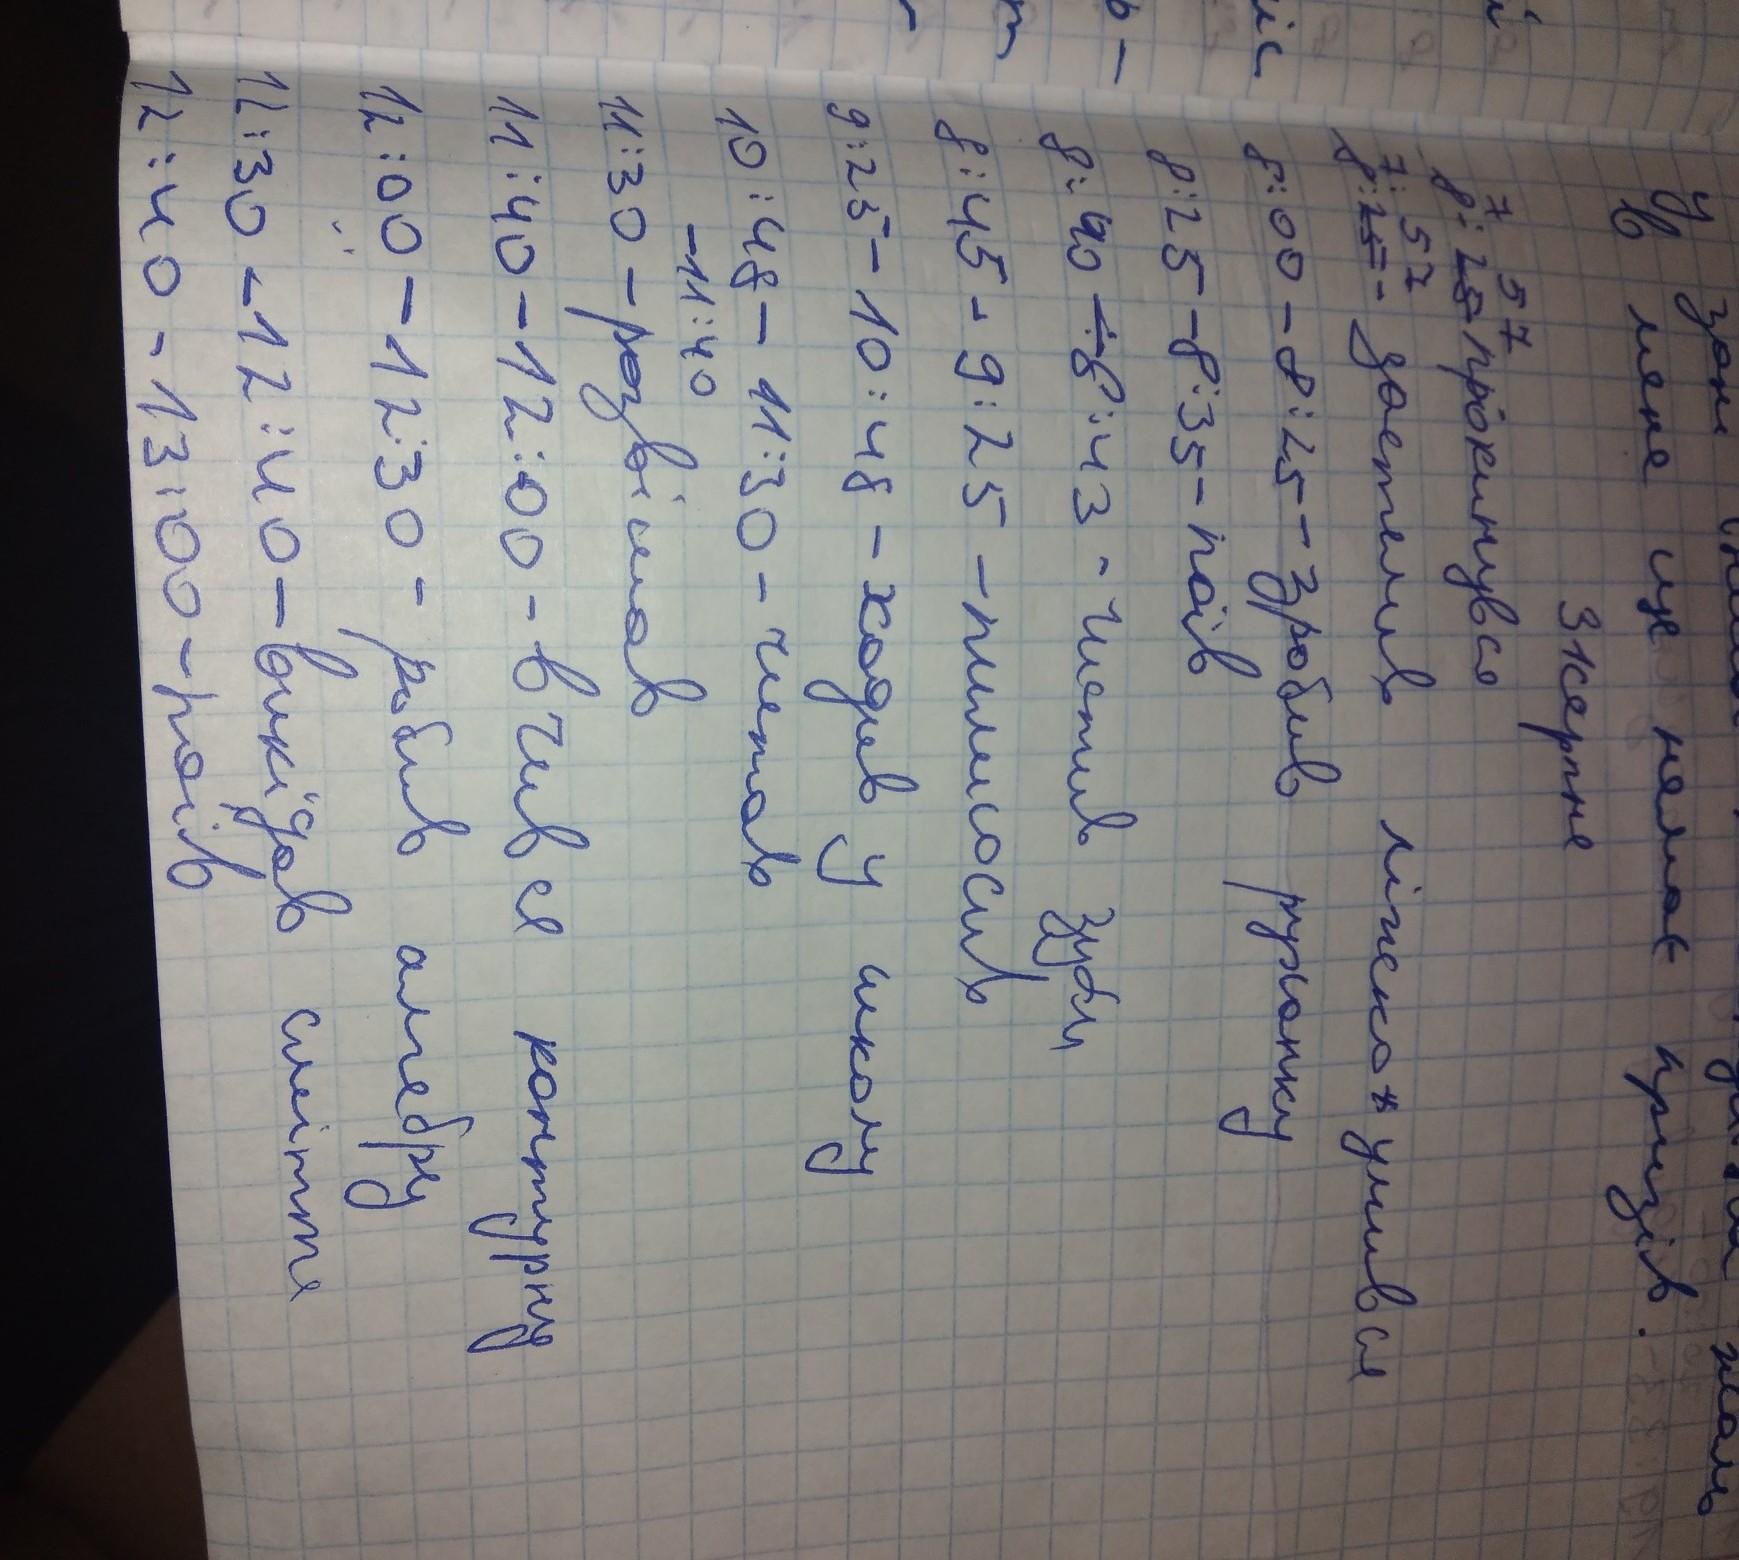 В мене ще немає призів.
31 серпня
7 57
8:25 - прокинувся
7:57
8:25 - застелив ліжко умився
8:00 - 8:25 - зробив руханку
8:25 - 8:35 - поїв
8:40 - 8:43 - чистив зуби
8:45 - 9:25 - пилисосив
9:25 - 10:48 - ходив у школу
10:48 - 11:30 - читав
- 11:40
11:30 - розвішав
11:40 - 12:00 - вчився контурну
12:00 - 12:30 - робив алгебру
12:30 - 12:40 - викідав смітття
12:40 - 13:00 - поїв